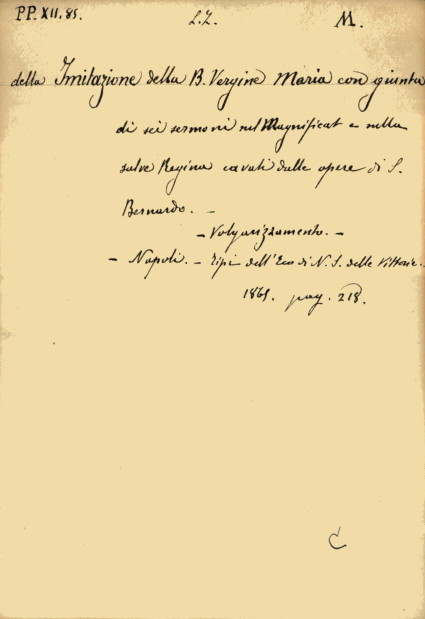 PP. XII. 85. L.Z. M.
della Imitazione della B. Vergine Maria con giunta
di sei sermoni nel Magnificat e nella
salve Regina cavati dalle opere di S.
Bernardo. -
- Volgarizzamento. -
- Napoli. - Tipi dell'Eco di N. S. delle Vittorie.
1861. pag. 218.
C